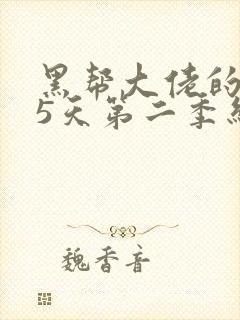 黑帮大佬的
5天第二季
魏香音